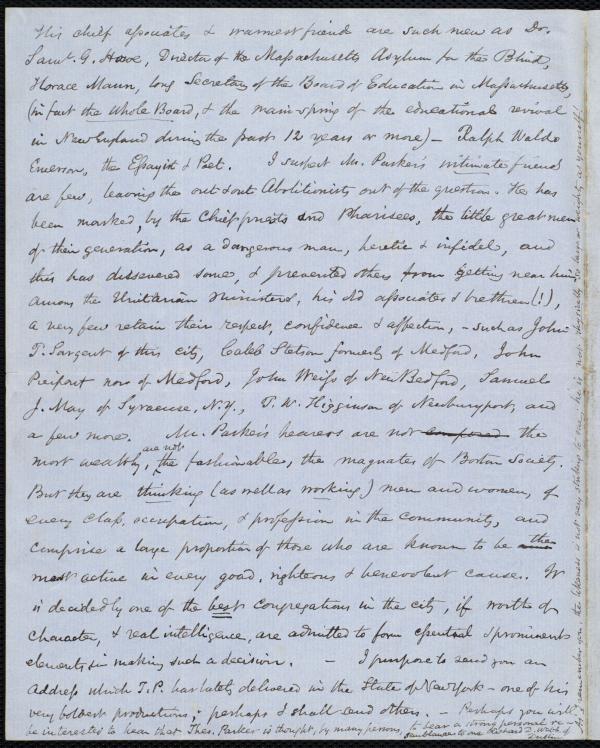 His chief associates & warmest friends are such men as Dr.
Saml. G. Howe, Director of the Massachusetts Asylum for the Blind,
Horace Mann, long Secretary of the Board of Education in Massachusetts,
(in fact the whole Board, & the main-spring of the educational revival
in New England during the past 12 years or more) – Ralph Waldo
Emerson, the Essayist & Poet. I suspect Mr. Parker's intimate friends
are few, leaving the out & out Abolitionists out of the question. He has
been marked, by the Chief priests and Pharisees, the little great men
of their generation, as a dangerous man, heretic & infidel, and
this has dissevered some, & prevented others from getting near him.
Among the Unitarian ministers, his old associates & brethren (!),
a very few retain their respect, confidence & affection, – such as John
T. Sargent of this city, Caleb Stetson formerly of Medford, John
Pierpont now of Medford, John Weiss of New Bedford, Samuel
J. May of Syracuse, N.Y., T. W. Higginson of Newburyport, and
a few more. Mr. Parker's hearers are not composed the
most wealthy, are not the fashionable, the magnates of Boston Society.
But they are thinking (as well as working) men and women, of
every class, occupation, & profession in the community, and
comprise a large proportion of those who are known to be the
most active in every good, righteous & benevolent cause. It
is decidedly one of the best congregations in the city, if worth of
character, & real intelligence, are admitted to form essential & prominent
elements in making such a decision. – I purpose to send you an
Address which T.P. has lately delivered in the State of New York – one of his
very boldest productions; perhaps I shall send others. – Perhaps you will
be interested to hear that Theo. Parker is thought, by many persons, to bear a strong personal re-
semblance to one Richard D. Webb of
Dublin.
As I remember you, the likeness is not very striking to me; he is not